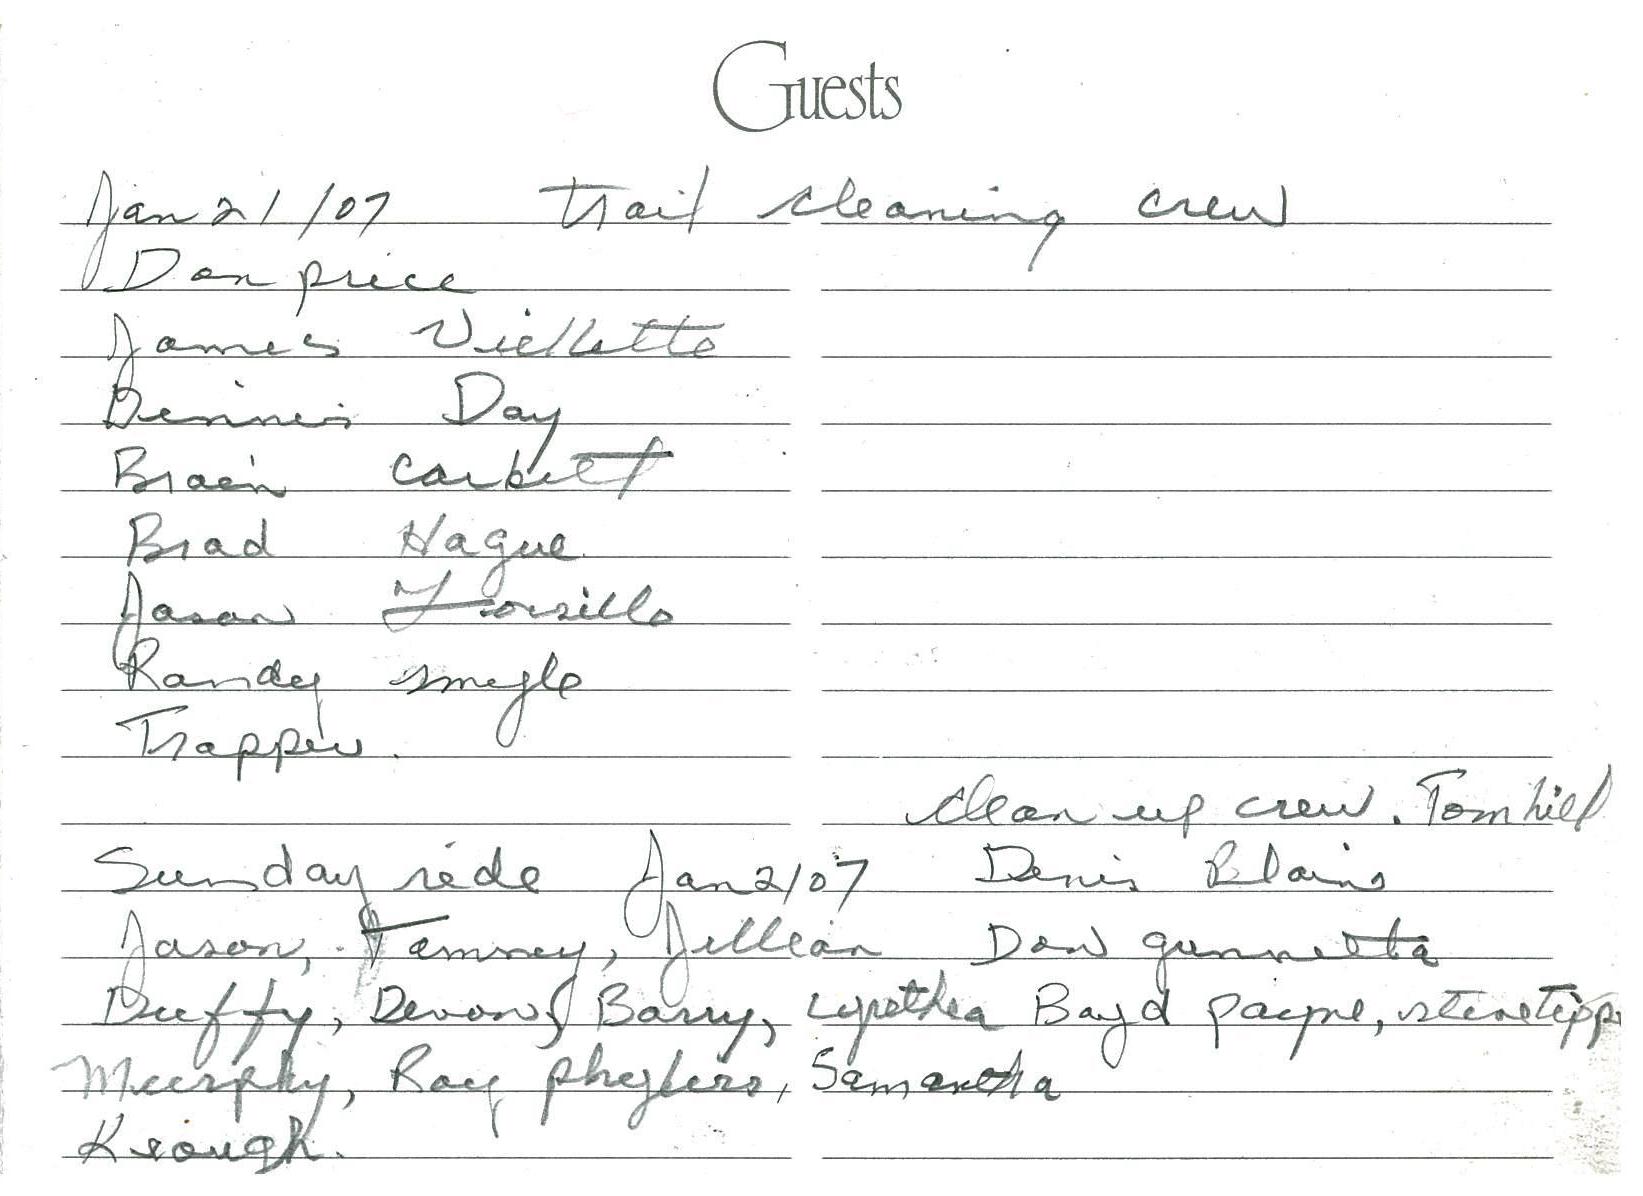 Guests
Jan 21/07 trail cleaning crew
Don price
James Viellette
Dennis Day
Brain Corbett
Brad Hague
Jason
Randy
Trapper.
clean up crew. Tom hill
Sunday ride Jan 21/07 Denis Blains
Jason, Tammey, Jillian Don gunnetta
Duffy, Devon, Barry, Boyd payne,
Murphy, Roy Samantha
Keough.